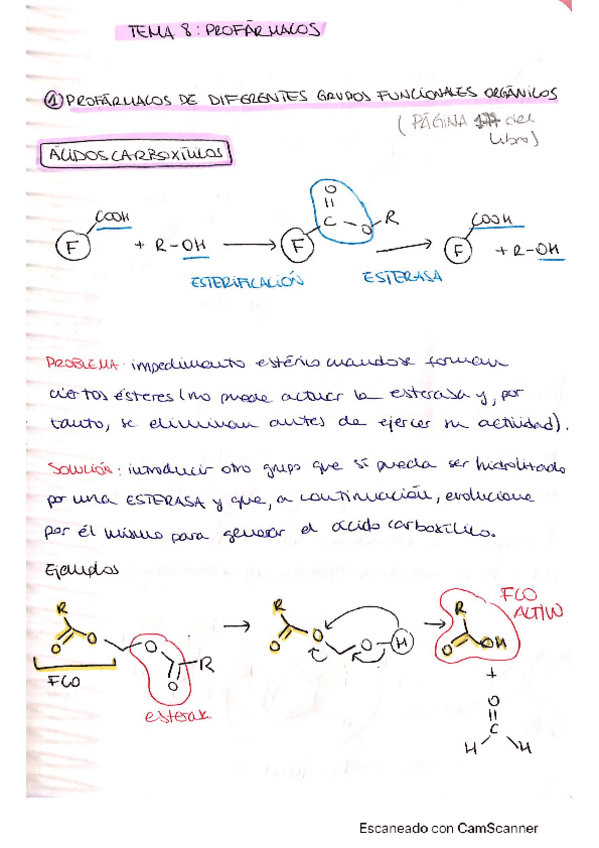 TEMA 8: PROFÁRMACOS
① PROFÁRMACOS DE DIFERENTES GRUPOS FUNCIONALES ORGÁNICOS
(PÁGINA del
libro)
ÁCIDOS CARBOXÍLICOS
F COOH + R-OH → F C O O-R → F COOH + R-OH
ESTERIFICACIÓN ESTERASA
PROBLEMA: impedimento estérico cuando se forman
ciertos ésteres (no puede actuar la esterasa y, por
tanto, se eliminan antes de ejercer su actividad).
SOLUCIÓN: introducir otro grupo que sí pueda ser hidrolizado
por una ESTERASA y que, a continuación, evolucione
por él mismo para generar el ácido carboxílico.
Ejemplos
FCO
ACTIVO
R O O O O R → R O O O H → R O OH
FCO
+
esterasa
O
C
H H
Escaneado con CamScanner